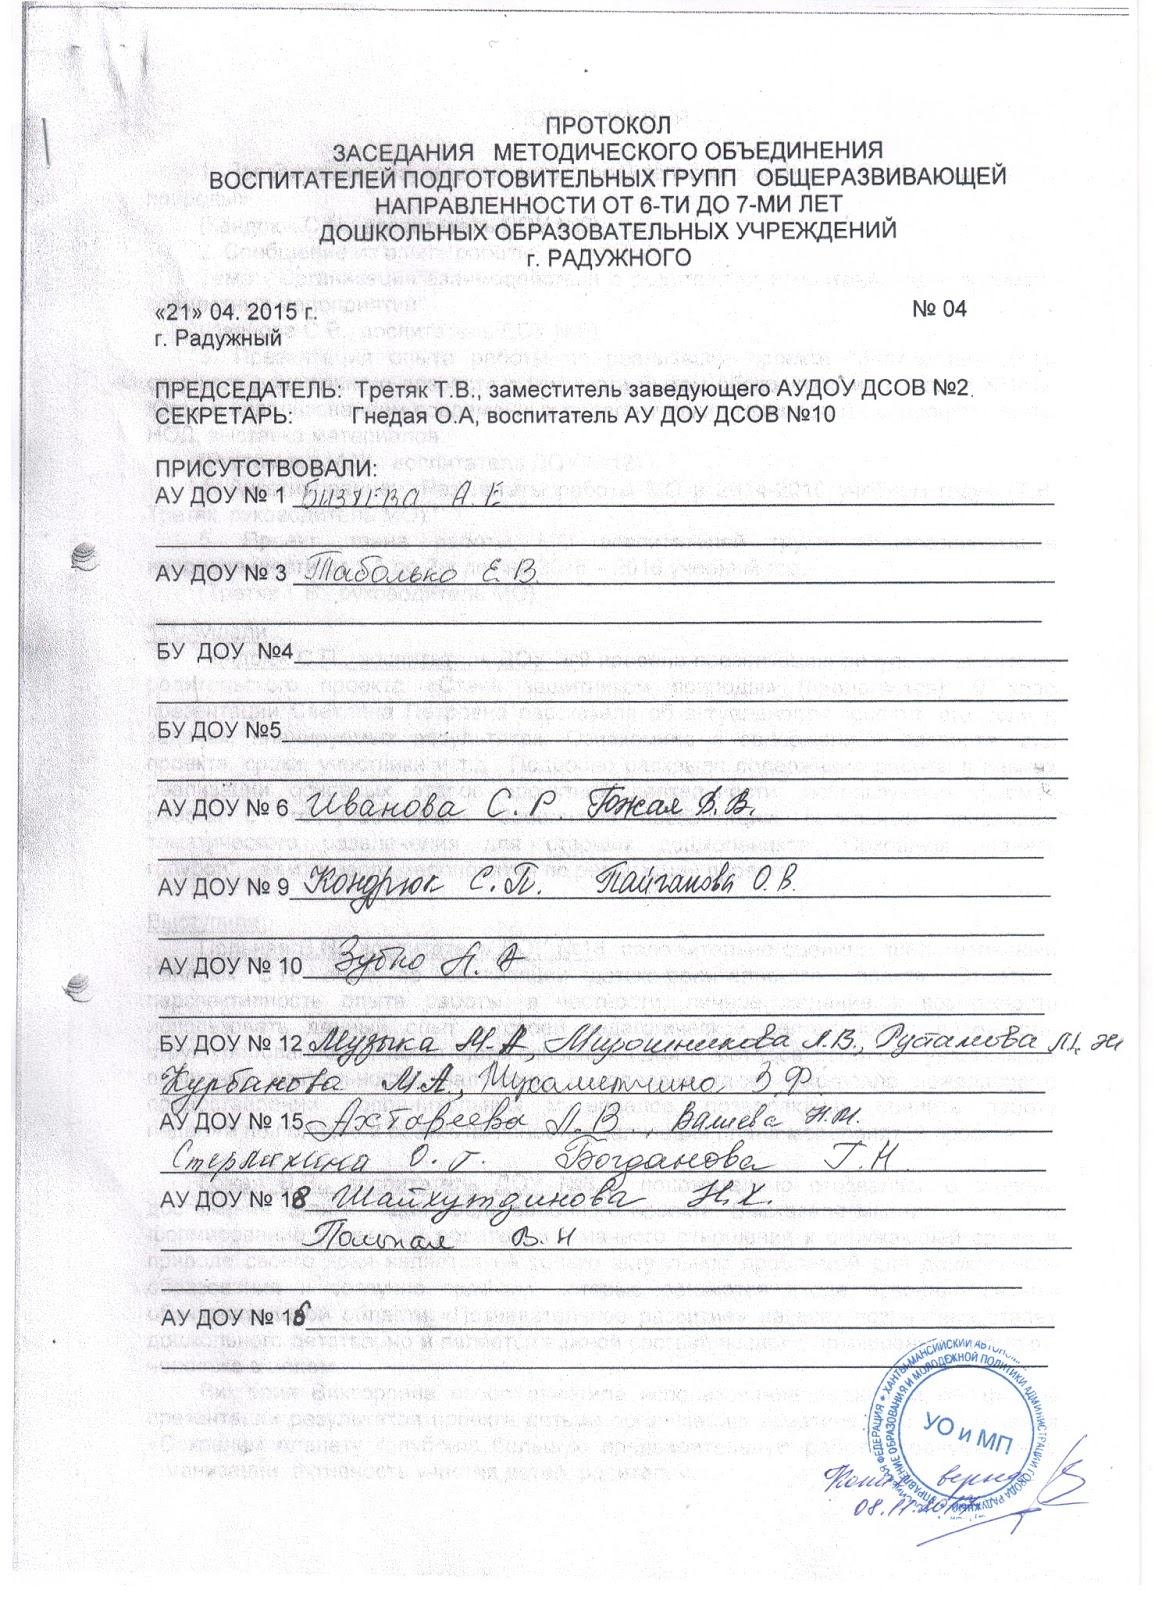 ПРОТОКОЛ
ЗАСЕДАНИЯ МЕТОДИЧЕСКОГО ОБЪЕДИНЕНИЯ
ВОСПИТАТЕЛЕЙ ПОДГОТОВИТЕЛЬНЫХ ГРУПП ОБЩЕРАЗВИВАЮЩЕЙ
НАПРАВЛЕННОСТИ ОТ 6-ТИ ДО 7-МИ ЛЕТ
ДОШКОЛЬНЫХ ОБРАЗОВАТЕЛЬНЫХ УЧРЕЖДЕНИЙ
г. РАДУЖНОГО
«21» 04. 2015 г. № 04
г. Радужный
ПРЕДСЕДАТЕЛЬ: Третяк Т.В., заместитель заведующего АУДОУ ДСОВ №2.
СЕКРЕТАРЬ: Гнедая О.А, воспитатель АУ ДОУ ДСОВ №10
ПРИСУТСТВОВАЛИ:
АУ ДОУ № 1 Бизяева А.Е
АУ ДОУ № 3 Таболько Е.В
БУ ДОУ №4
БУ ДОУ №5
АУ ДОУ № 6 Иванова С.Р. Гожая В.В.
АУ ДОУ № 9 Кондрюк С.П. Пайганова О.В.
АУ ДОУ № 10 Зубко Н.А
БУ ДОУ № 12 Музыка М.А, Мирошникова Л.В., Рустамова
Курбанова М.А., Мухаметчина З.Ф.
АУ ДОУ № 15 Ахтареева Л.В., Валиева Н.М.
Стерлихина О.Г. Богданова Г.Н.
АУ ДОУ № 18 Шайхутдинова Н.Х.
Польная В.Н
АУ ДОУ № 16
УО и МП
Копия верна
08.11.